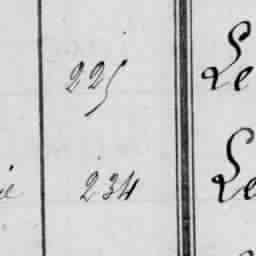 225 Le
234 Le